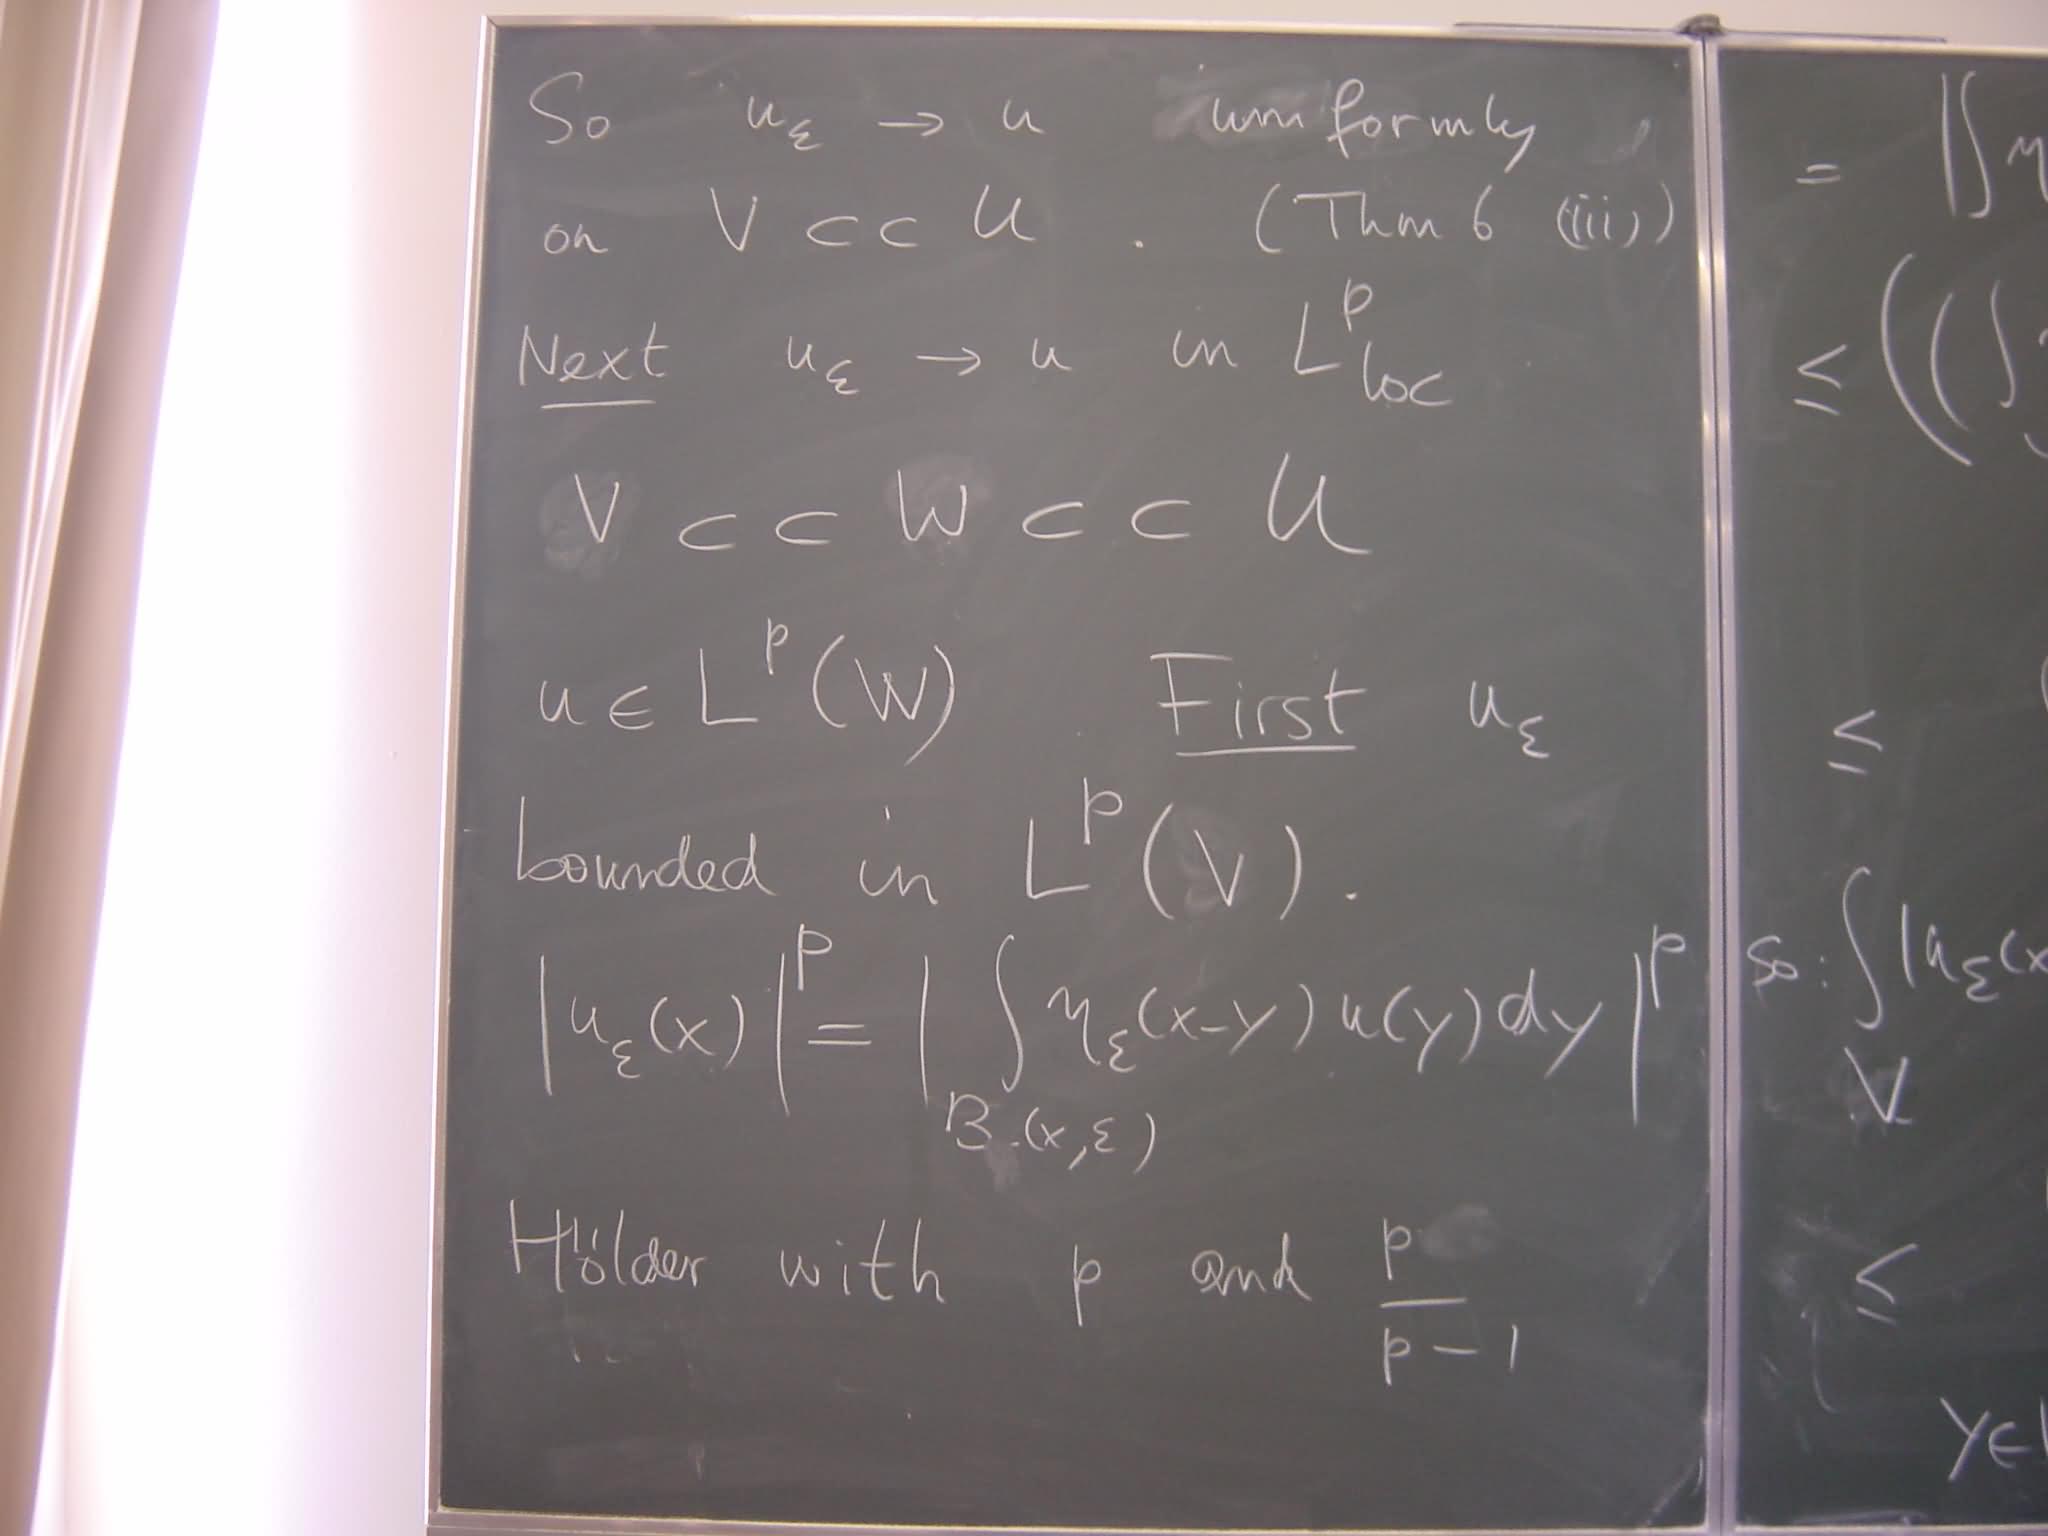 So u_ε → u uniformly
on V ⊂⊂ U . (Thm 6 (iii))
Next u_ε → u in L^p_loc
V ⊂⊂ W ⊂⊂ U
u ∈ L^p(W) First u_ε
bounded in L^p(V).
|u_ε(x)|^p = | ∫_{B(x,ε)} η_ε(x-y) u(y) dy |^p
Hölder with p and p/(p-1)
= |∫ η
≤ ((∫
≤
so: ∫_V |u_ε(x
≤
y∈